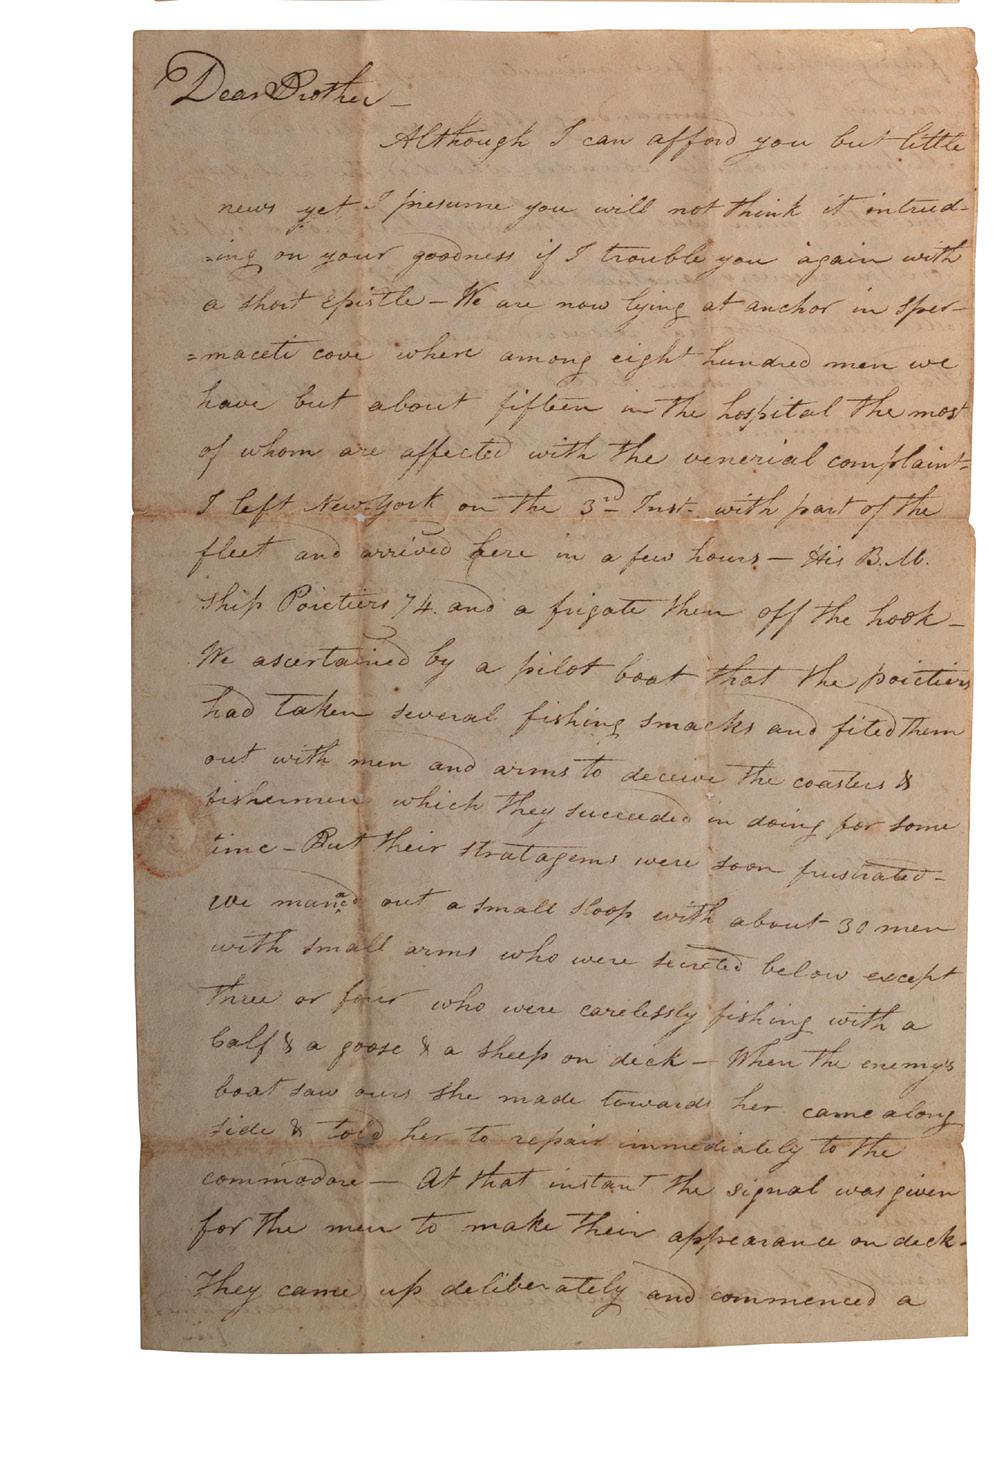 Dear Brother –
Although I can afford you but little
news yet I presume you will not think it intrud-
=ing on your goodness if I trouble you again with
a short Epistle – We are now lying at anchor in Sper-
=maceti cove where among eight hundred men we
have but about fifteen in the hospital the most
of whom are affected with the venerial complaint-
I left New-York on the 3rd Inst- with part of the
fleet and arrived here in a few hours – His B.M.
Ship Poictiers 74. and a frigate then off the hook –
We ascertained by a pilot boat that the poictiers
had taken several fishing smacks and fited them
out with men and arms to deceive the coasters &
fishermen which they succeeded in doing for some
time – But their stratagems were soon frustrated –
we maned out a small sloop with about 30 men
with small arms who were secreted below except
three or four who were carelessly fishing with a
Calf & a goose & a sheep on deck – When the enemy's
boat saw ours she made towards her came along
side & told her to repair immediately to the
commodore – At that instant the signal was given
for the men to make their appearance on deck.
They came up deliberately and commenced a